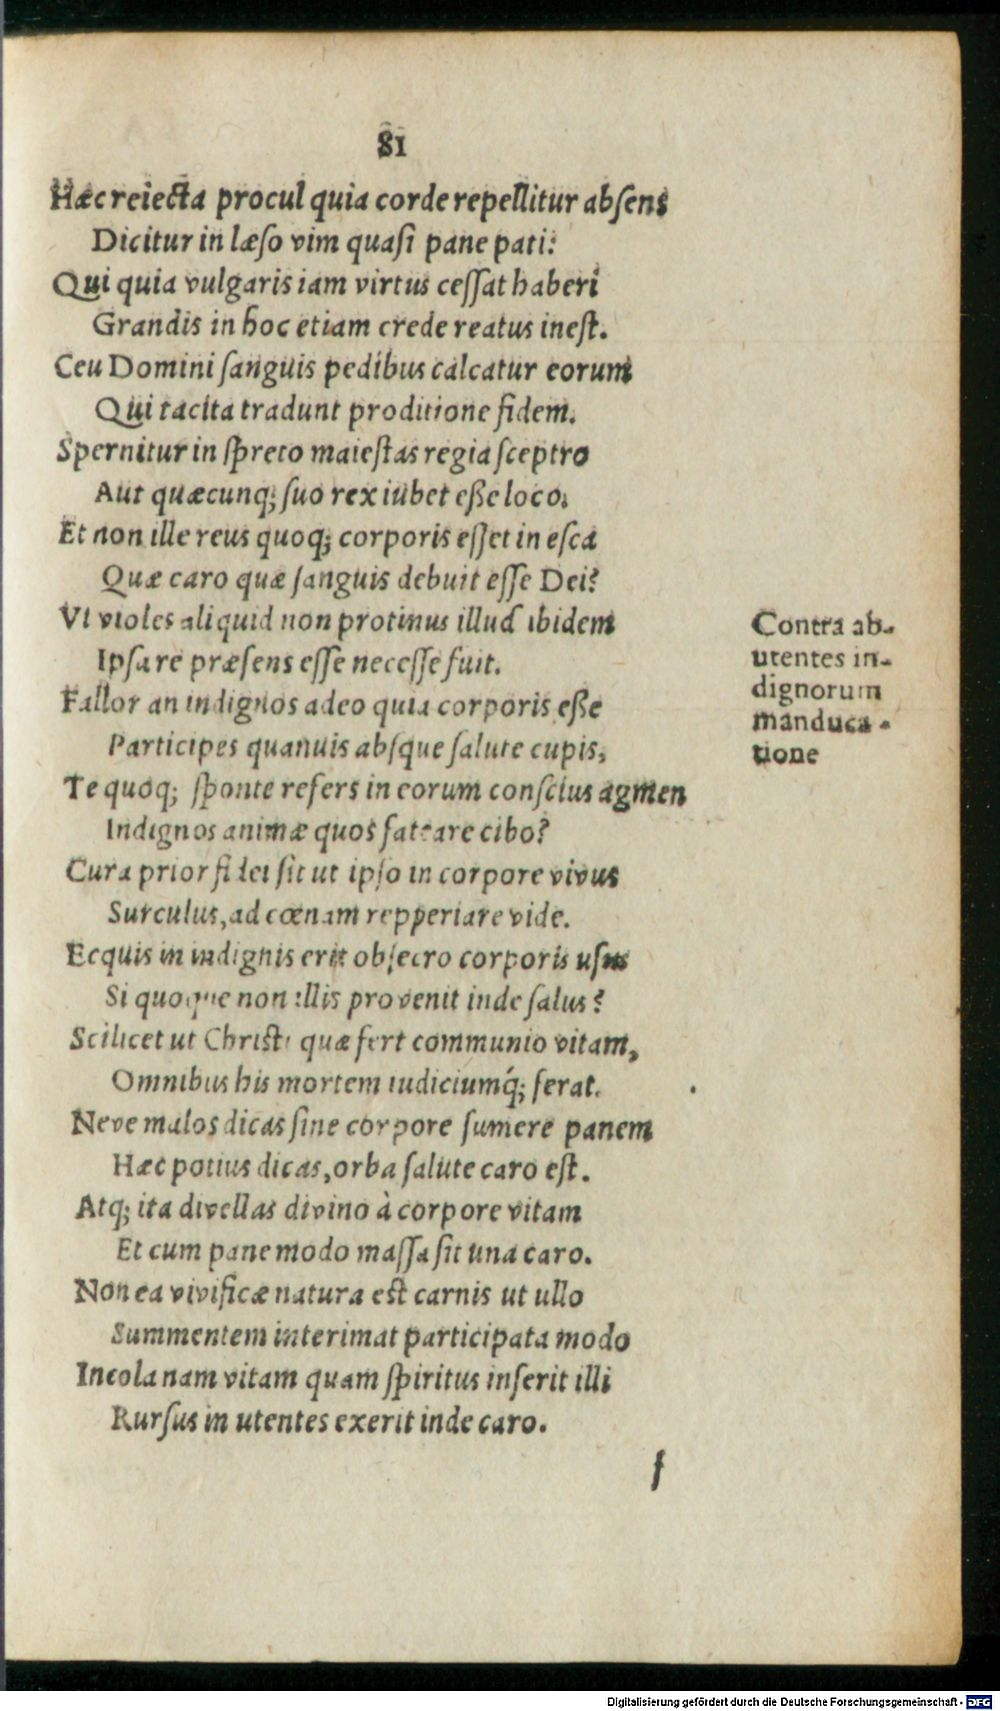 81
Hæc reiecta procul quia corde repellitur absens
Dicitur in læso vim quasi pane pati:
Qui quia vulgaris iam virtus cessat haberi
Grandis in hoc etiam crede reatus inest.
Ceu Domini sanguis pedibus calcatur eorum
Qui tacita tradunt proditione fidem.
Spernitur in spreto maiestas regia sceptro
Aut quæcunq; suo rex iubet esse loco.
Et non ille reus quoq; corporis esset in esca
Quæ caro quæ sanguis debuit esse Dei?
Vt violes aliquid non protinus illud ibidem
Ipsa re præsens esse necesse fuit.
Fallor an indignos adeo quia corporis esse
Participes quanuis absque salute cupis,
Te quoq; sponte refers in eorum conscius agmen
Indignos animæ quos fateare cibo?
Cura prior fidei sit ut ipso in corpore vivus
Surculus, ad cœnam repperiare vide.
Ecquis in indignis erit obsecro corporis usus
Si quoque non illis provenit inde salus?
Scilicet ut Christi quæ fert communio vitam,
Omnibus his mortem iudiciumq́; ferat.
Neve malos dicas sine corpore sumere panem
Hæc potius dicas, orba salute caro est.
Atq; ita divellas divino à corpore vitam
Et cum pane modo massa sit una caro.
Non ea vivificæ natura est carnis ut ullo
Summentem interimat participata modo
Incola nam vitam quam spiritus inserit illi
Rursus in utentes exerit inde caro.
f
Contra ab-
utentes in-
dignorum
manduca-
tione
Digitalisierung gefördert durch die Deutsche Forschungsgemeinschaft - DFG